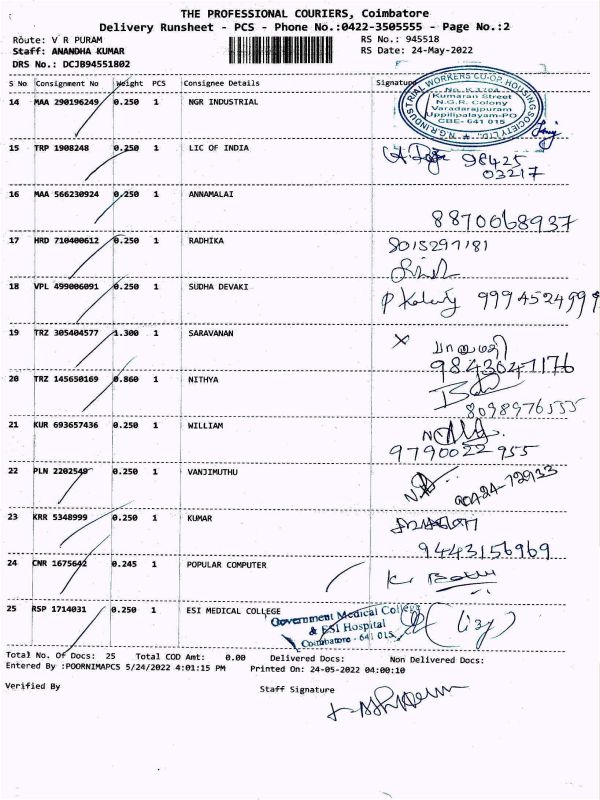 THE PROFESSIONAL COURIERS, Coimbatore
Delivery Runsheet - PCS - Phone No.:0422-3505555 - Page No.:2
Route: V R PURAM
RS No.: 945518
Staff: ANANDHA KUMAR
RS Date: 24-May-2022
DRS No.: DCJB94551802
S No Consignment No Weight PCS Consignee Details Signature
14 MAA 290196249 0.250 1 NGR INDUSTRIAL
WORKERS CO-OP. HOUSING SOCIETY LTD.,
N.G.R. INDUSTRIAL
No. K.1704
Kumaran Street
N.G.R. Colony
Varadarajpuram
Uppilipalayam-PO
CBE- 641 015
15 TRP 1908248 0.250 1 LIC OF INDIA
98425
03217
16 MAA 566230924 0.250 1 ANNAMALAI
8870068937
17 HRD 710400612 0.250 1 RADHIKA
8015297181
18 VPL 499006091 0.250 1 SUDHA DEVAKI
P 9994524999
19 TRZ 305404577 1.300 1 SARAVANAN
9843047176
20 TRZ 145650169 0.860 1 NITHYA
8098976555
21 KUR 693657436 0.250 1 WILLIAM
9790022955
22 PLN 2202549 0.250 1 VANJIMUTHU
90424-72933
23 KRR 5348999 0.250 1 KUMAR
9443156969
24 CNR 1675642 0.245 1 POPULAR COMPUTER
25 RSP 1714031 0.250 1 ESI MEDICAL COLLEGE
Government Medical College
& ESI Hospital
Coimbatore - 641 015.
Total No. Of Docs: 25 Total COD Amt: 0.00 Delivered Docs: Non Delivered Docs:
Entered By :POORNIMAPCS 5/24/2022 4:01:15 PM Printed On: 24-05-2022 04:00:10
Verified By
Staff Signature